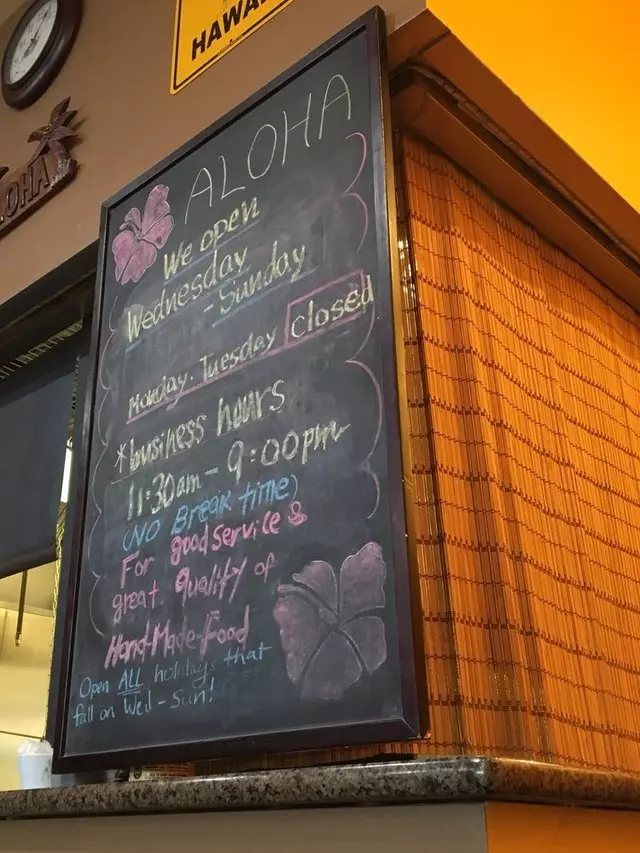 HAWAI
LOHA
ALOHA
We open
Wednesday
- Sunday
Monday. Tuesday closed
*business hours
11:30am - 9:00pm
(NO Break time)
For good service &
great quality of
Hand-Made-food
Open ALL holidays that
fall on Wed - Sun!